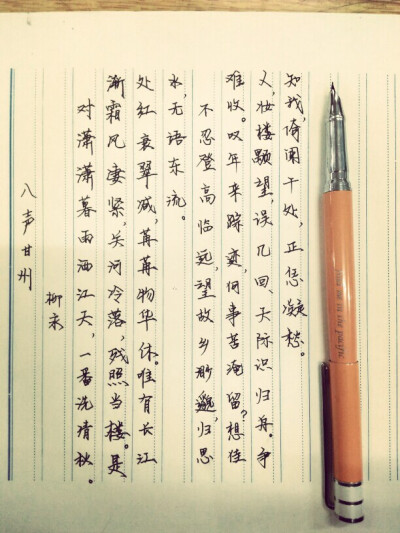 八声甘州
柳永
对潇潇暮雨洒江天，一番洗清秋。
渐霜风凄紧，关河冷落，残照当楼。是
处红衰翠减，苒苒物华休。唯有长江
水，无语东流。
不忍登高临远，望故乡渺邈，归思
难收。叹年来踪迹，何事苦淹留？想佳
人，妆楼颙望，误几回、天际识归舟。争
知我，倚阑干处，正恁凝愁。